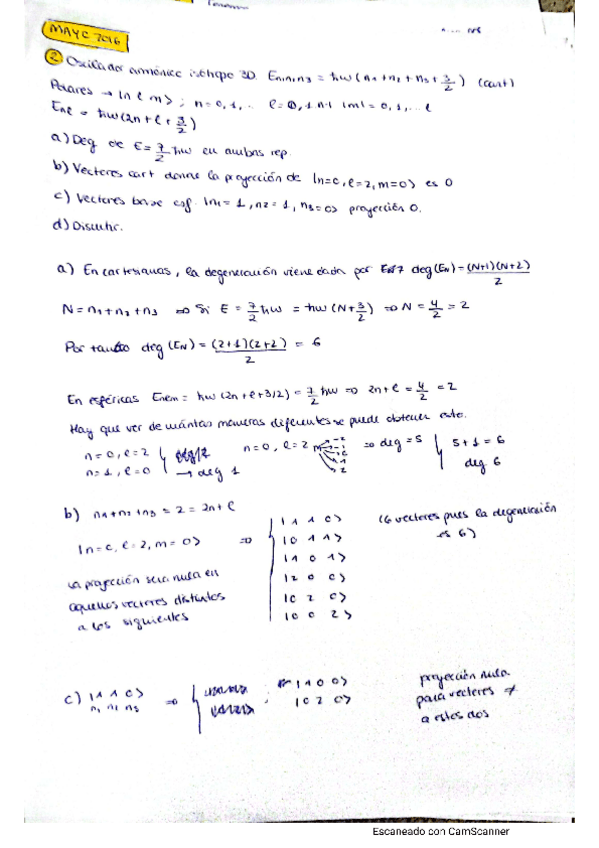 MAYO 2016
② Oscilador armónico isótropo 3D. En₁n₂n₃ = ħω(n₁+n₂+n₃+3/2) (cart)
Polares → |n l m> ; n=0,1,.. l=0,1..n-1 |m|=0,1,...l
Enl = ħω(2n+l+3/2)
a) Deg de E=7/2 ħω en ambas rep.
b) Vectores cart donde la proyección de |n=0, l=2, m=0> es 0
c) Vectores base esf. |n₁=1, n₂=1, n₃=0> proyección 0.
d) Discutir.
a) En cartesianas, la degeneración viene dada por deg(EN) = (N+1)(N+2)/2
N = n₁+n₂+n₃ ⇒ Si E = 7/2 ħω = ħω(N+3/2) ⇒ N = 4/2 = 2
Por tanto deg(EN) = (2+1)(2+2)/2 = 6
En esféricas Enlm = ħω(2n+l+3/2) = 7/2 ħω ⇒ 2n+l = 4/2 = 2
Hay que ver de cuántas maneras diferentes se puede obtener esto.
n=0, l=2
n=1, l=0 → deg 1
n=0, l=2 m -2 -1 0 1 2 ⇒ deg = 5
5+1=6
deg 6
b) n₁+n₂+n₃ = 2 = 2n+l
|n=0, l=2, m=0> ⇒
|1 1 0>
|0 1 1>
|1 0 1>
|2 0 0>
|0 2 0>
|0 0 2>
(6 vectores pues la degeneración es 6)
La proyección será nula en
aquellos vectores distintos
a los siguientes
c) |1 1 0> ⇒
n₁ n₂ n₃
; |1 0 0>
|0 2 0>
proyección nula
para vectores ≠
a estos dos
Escaneado con CamScanner